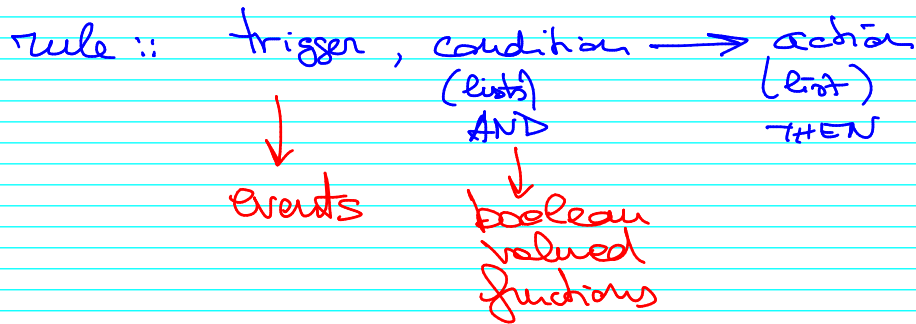 rule :: trigger , condition → action
(lists) (list)
AND THEN
events boolean
valued
functions